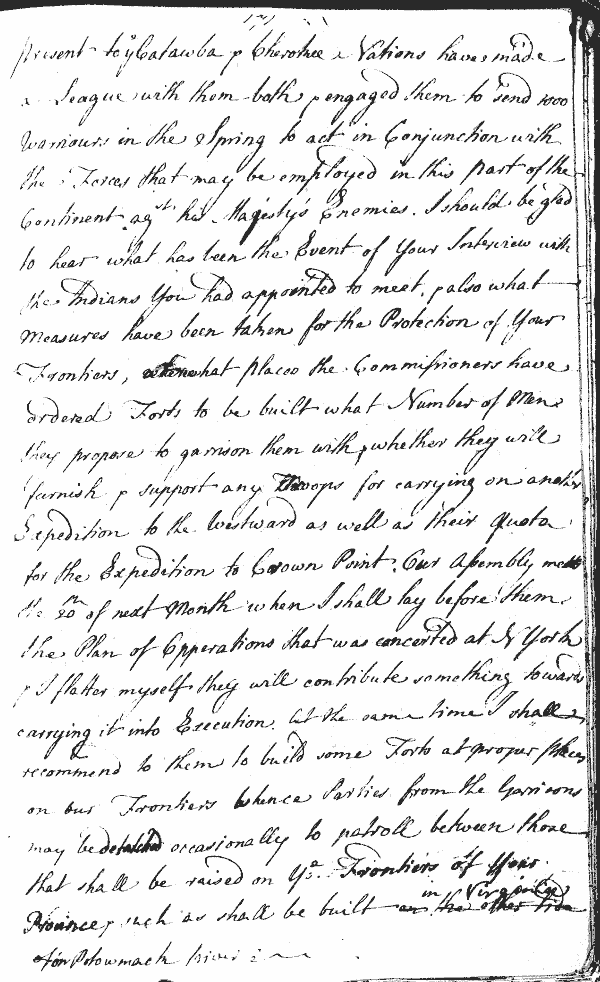 present to yͤ Catawba & Cherokee Nations have made
a League with them both & engaged them to send 1000
Warriours in the Spring to act in Conjunction with
the Forces that may be employed in this part of the
Continent agˢᵗ his Majesty's Enemies. I should be glad
to hear what has been the Event of Your Interview with
the Indians You had appointed to meet, & also what
Measures have been taken for the Protection of Your
Frontiers, what places the Commissioners have
ordered Forts to be built what Number of Men
they propose to garrison them with, & whether they will
furnish & support any Troops for carrying on another
Expedition to the Westward as well as their Quota
for the Expedition to Crown Point. Our Assembly meets
the 20ᵗʰ of next Month when I shall lay before them
the Plan of Opperations that was concerted at N York
& I flatter myself they will contribute something towards
carrying it into Execution. At the same time I shall
recommend to them to build some Forts at proper places
on our Frontiers whence Parties from the Garrisons
may be detached occasionally to patroll between those
that shall be raised on yͤ Frontiers of Your
Province, & such as shall be built in Virginia
on the other side
on Potowmack river